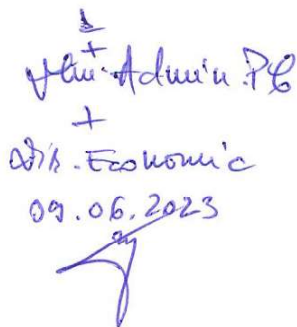 +
Admin. PC
+
Dir. Economic
09.06.2023